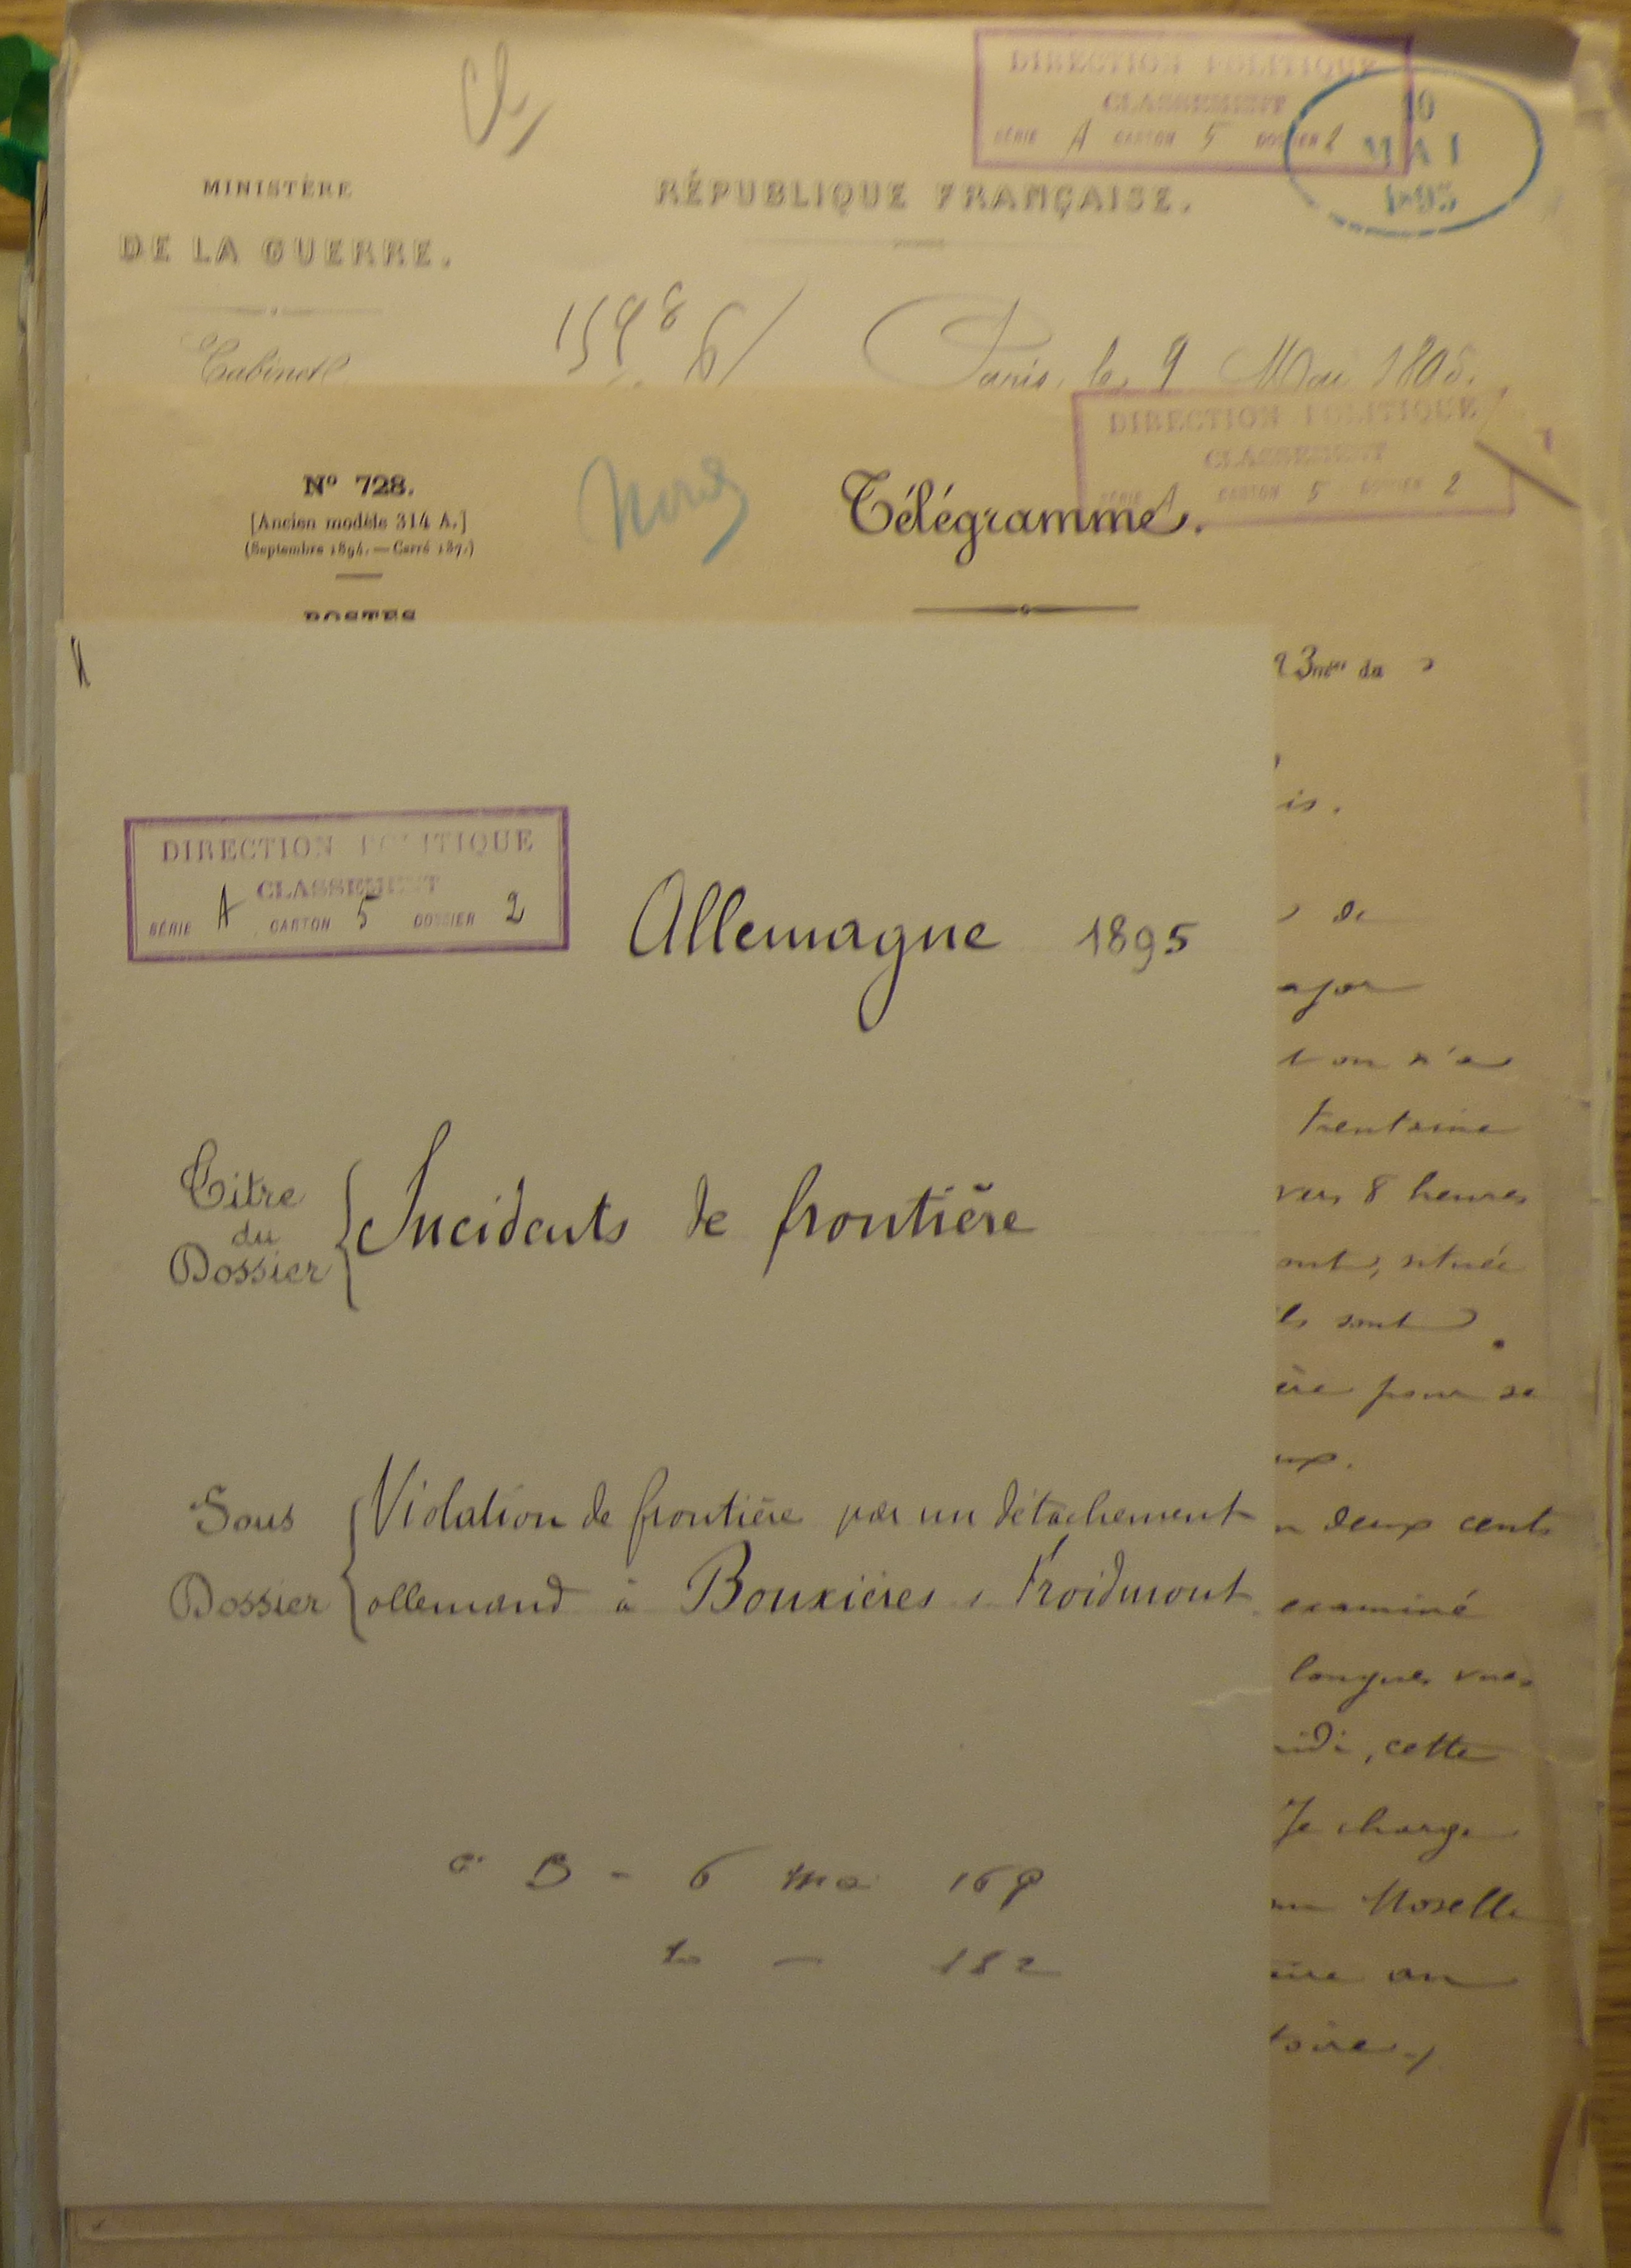 DIRECTION POLITIQUE
CLASSEMENT
SÉRIE A CARTON 5 DOSSIER 2
10
MAI
1895
MINISTÈRE
DE LA GUERRE.
RÉPUBLIQUE FRANÇAISE.
Cabinet
1598
Paris, le 9 Mai 1895.
DIRECTION POLITIQUE
CLASSEMENT
SÉRIE A CARTON 5 DOSSIER 2
Nº 728.
[Ancien modèle 314 A.]
(Septembre 1894. — Carré 137.)
POSTES
Nord
Télégramme.
is.
DIRECTION POLITIQUE
CLASSEMENT
SÉRIE A CARTON 5 DOSSIER 2
Allemagne 1895
de
ajor
on n'a
trentaine
Titre
du
Dossier
Incidents de frontière
vers 8 heures
ont, située
ils sont
ère pour se
Sous
Dossier
Violation de frontière par un détachement
allemand à Bouxières s. Froidmont
deux cents
examiné
longues vues
midi, cette
Je charge
Moselle
au
toire
6 mai 169
10 — 182